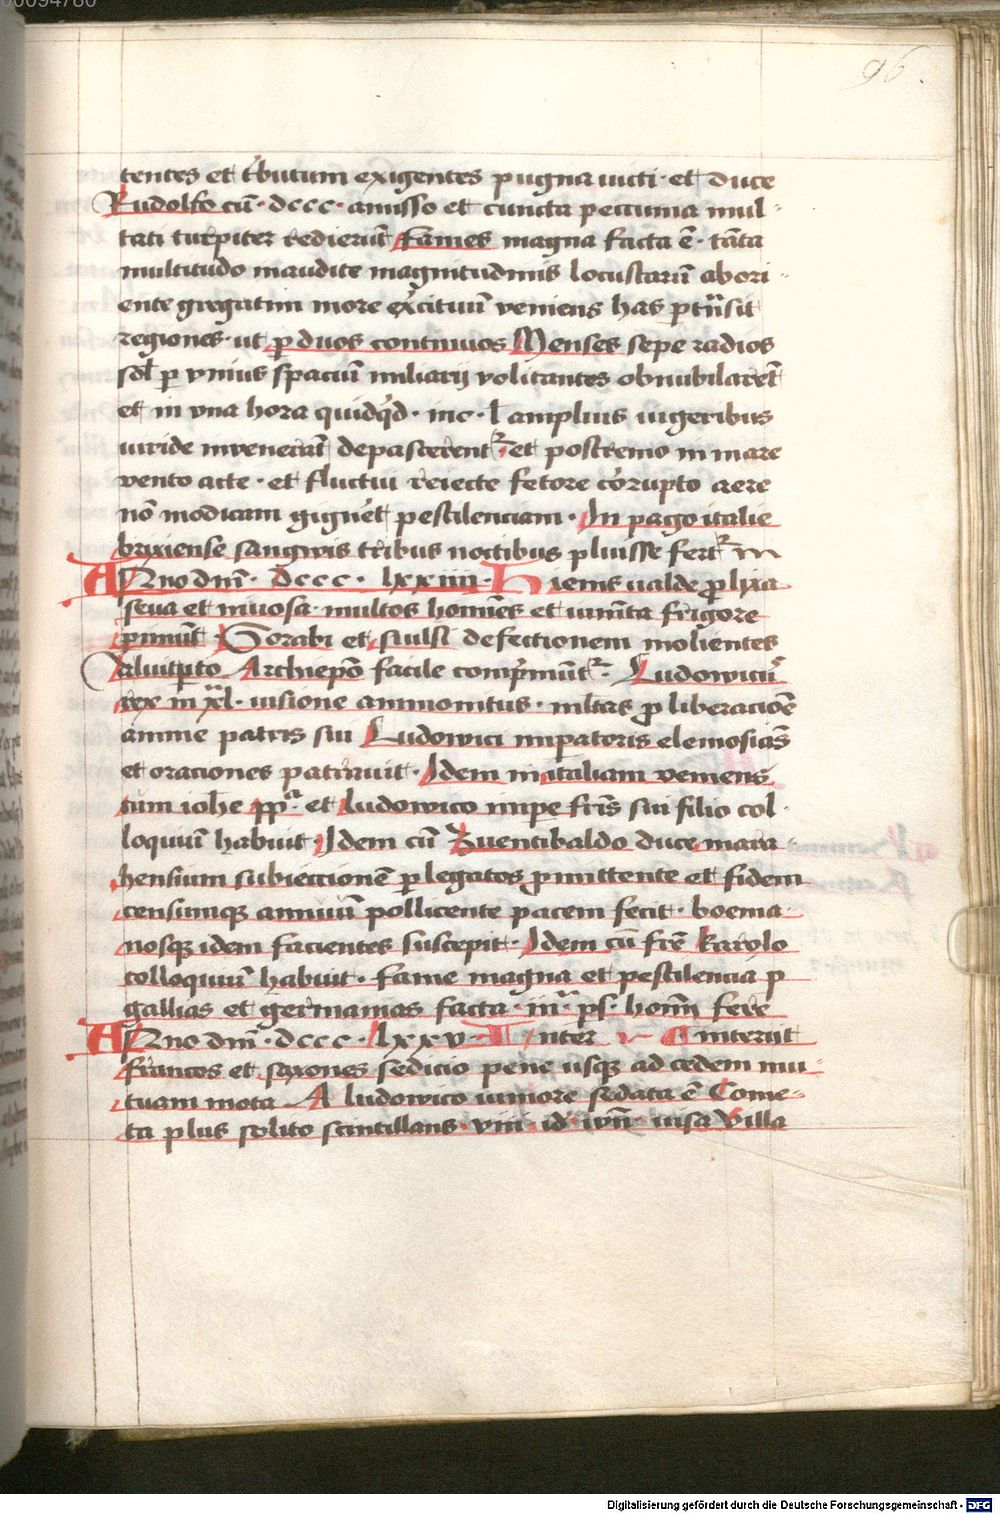 00094780
96.
tentes et t'butum exigentes pugna uicti · et duce
Rudolfo cū · dccc · amisso et cuncta peccunia mul-
tati turpiter redierūt Fames magna facta ē · tāta
multitudo inaudite magnitudinis locustarū abori-
ente gregatim more ex'cituū veniens has pertrāsit
regiones · ut per duos continuos Menses sepe radios
sol' per vnius spaciū miliarij volitantes obnubilarēt
et in vna hora quidq'd · in c · l' amplius iugeribus
uiride invenerāt depascerent'r et postremo in mare
vento acte · et fluctui reiecte fetore corrupto aere
nō modicam gignēt pestilenciam · In pago italie
brixiense sangwis tribus noctibus pluisse fert'r
ANno dnī · dccc · lxxiiii · Hiems ualde prolixa
seua et niuosa · multos homīes et iumēta frigore
pimūt Sorabi et siusli defectionem molientes
a luitperto Archiepō facile comp'munt'r · Ludowicū'
rex in xl · visione ammonitus · mltas pro liberacioē
anime patris sui Ludowici impatoris elemosiās
et oraciones patrauit · Idem in italiam veniens
cum ioh'e pp'a · et ludowico impe fr'is sui filio col-
loquiū habuit Idem cū Zuentibaldo duce mara-
hensium subieccionē per legatos promittente et fidem
censumque annuū pollicente pacem fecit · boema-
nosque idem facientes suscepit · Idem cū fr'e karolo
colloquiū habuit · fame magna et pestilencia p
gallias et germanias facta · iii'a ps · hominū fere
ANno dnī · dccc · lxxv · Inter interiit
francos et saxones sedicio pene usque ad cedem mu-
tuam mota A ludowico iuniore sedata ē Come-
ta plus solito scintillans · viii · id' · iun' · uisa Villa
Digitalisierung gefördert durch die Deutsche Forschungsgemeinschaft - DFG